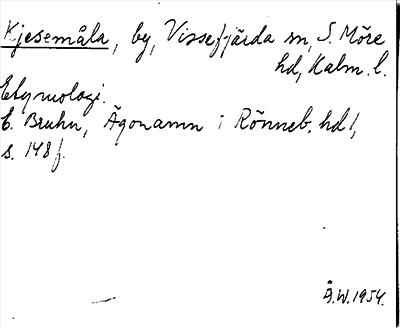 Kjesemåla, by, Vissefjärda sn, S. Möre
hd, Kalm. l.
Etymologi.
E. Bruhn, Ägonamn i Rönneb. hd 1,
s. 148 f.
Å.W. 1954.